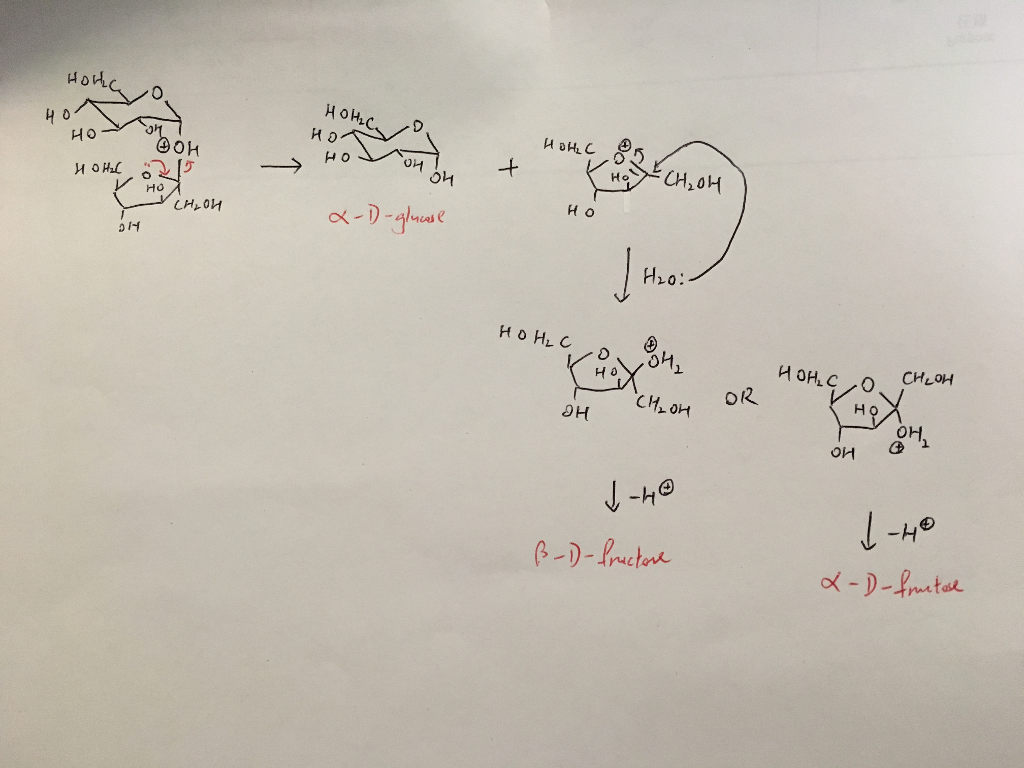 HOH₂C
O
HO
HO
OH
⊕OH
HOH₂C
O
HO
CH₂OH
OH
→
HOH₂C
O
HO
HO
OH
OH
α-D-glucose
+
HOH₂C
⊕
O
HO
CH₂OH
HO
H₂O:
HOH₂C
O
HO
⊕
OH₂
CH₂OH
OH
OR
HOH₂C
O
CH₂OH
HO
OH₂
⊕
OH
↓ -H⊕
β-D-fructose
↓ -H⊕
α-D-frutose